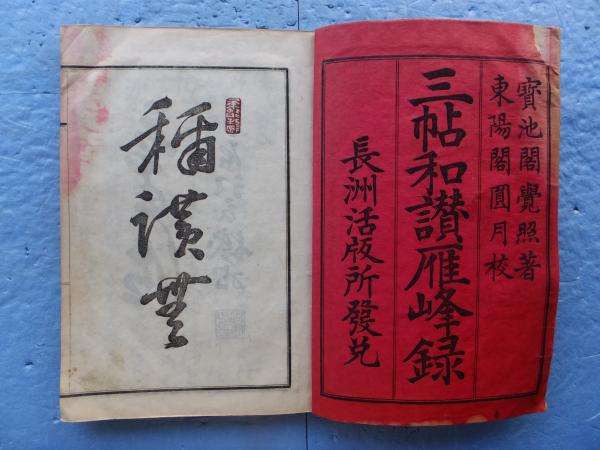 寶池閣覺照著
東陽閣圓月校
三帖和讃雁峰録
長洲活版所發兌
稱讃無